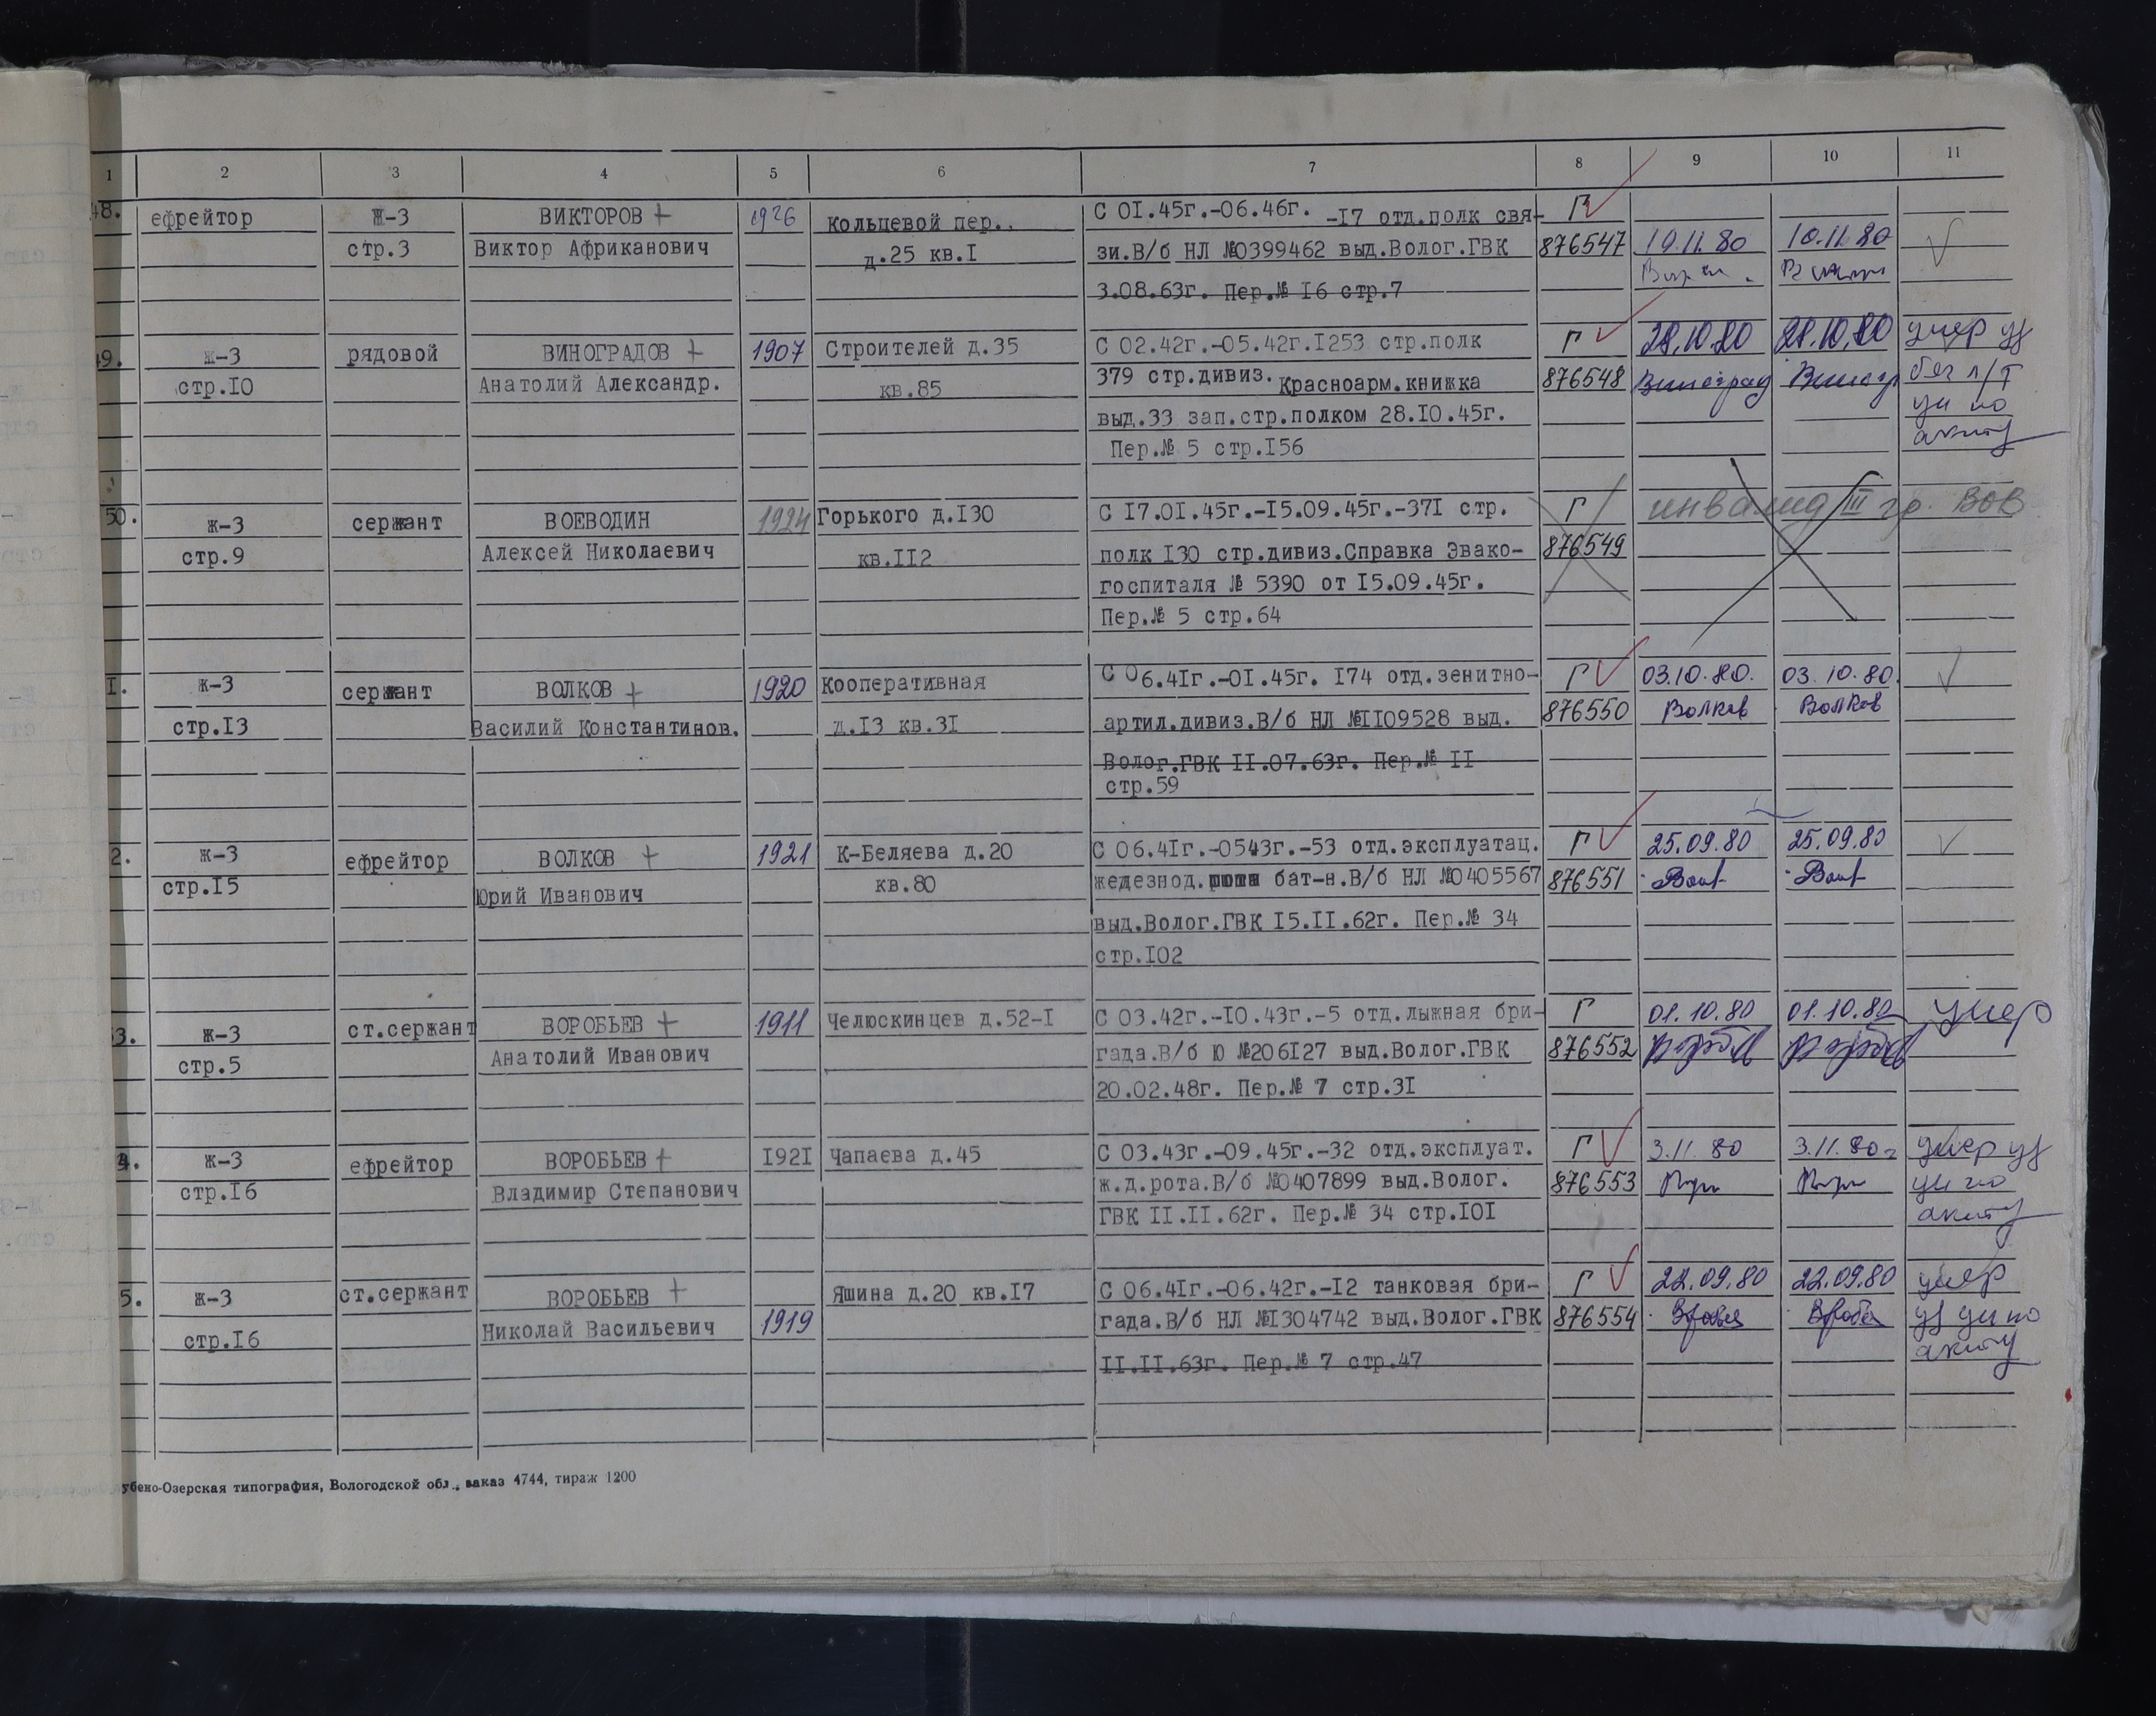 1 2 3 4 5 6 7 8 9 10 11
48. ефрейтор Ж-3 ВИКТОРОВ + 1926 Кольцевой пер.. С 01.45г.-06.46г. -17 отд.полк свя- Г
стр.3 Виктор Африканович д.25 кв.I зи.В/б НЛ №0399462 выд.Волог.ГВК 876547 10.11.80 10.11.80
3.08.63г. Пер.№ I6 стр.7
49. Ж-3 рядовой ВИНОГРАДОВ + 1907 Строителей д.35 С 02.42г.-05.42г.I253 стр.полк Г 28.10.80 28.10.80 умер уд
стр.I0 Анатолий Александр. кв.85 379 стр.дивиз. Красноарм.книжка 876548 Виноград Виногр без л/т
выд.33 зап.стр.полком 28.I0.45г. ун по
Пер.№ 5 стр.I56 акту
50. Ж-3 сержант ВОЕВОДИН 1924 Горького д.I30 С I7.0I.45г.-I5.09.45г.-37I стр. Г инвалид III гр. ВОВ
стр.9 Алексей Николаевич кв.II2 полк I30 стр.дивиз.Справка Эвако- 876549
госпиталя № 5390 от I5.09.45г.
Пер.№ 5 стр.64
I. Ж-3 сержант ВОЛКОВ + 1920 Кооперативная С 06.4Iг.-0I.45г. I74 отд.зенитно- Г 03.10.80. 03.10.80.
стр.I3 Василий Константинов. д.I3 кв.3I артил.дивиз.В/б НЛ №II09528 выд. 876550 Волков Волков
Волог.ГВК II.07.63г. Пер.№ II
стр.59
2. Ж-3 ефрейтор ВОЛКОВ + 1921 К-Беляева д.20 С 06.4Iг.-0543г.-53 отд.эксплуатац. Г 25.09.80 25.09.80
стр.I5 Юрий Иванович кв.80 железнод. бат-н.В/б НЛ №0405567 876551
выд.Волог.ГВК I5.II.62г. Пер.№ 34
стр.I02
53. Ж-3 ст.сержант ВОРОБЬЕВ + 1911 Челюскинцев д.52-I С 03.42г.-I0.43г.-5 отд.лыжная бри- Г 01.10.80 01.10.80 умер
стр.5 Анатолий Иванович гада.В/б Ю №206I27 выд.Волог.ГВК 876552
20.02.48г. Пер.№ 7 стр.3I
4. Ж-3 ефрейтор ВОРОБЬЕВ + I92I Чапаева д.45 С 03.43г.-09.45г.-32 отд.эксплуат. Г 3.11.80 3.11.80г умер уд
стр.I6 Владимир Степанович ж.д.рота.В/б №0407899 выд.Волог. 876553 ун по
ГВК II.II.62г. Пер.№ 34 стр.I0I акту
5. Ж-3 ст.сержант ВОРОБЬЕВ + Яшина д.20 кв.I7 С 06.4Iг.-06.42г.-I2 танковая бри- Г 22.09.80 22.09.80 умер
стр.I6 Николай Васильевич 1919 гада.В/б НЛ №I304742 выд.Волог.ГВК 876554 уд ун по
II.II.63г. Пер.№ 7 стр.47 акту
убено-Озерская типография, Вологодской обл., заказ 4744, тираж 1200